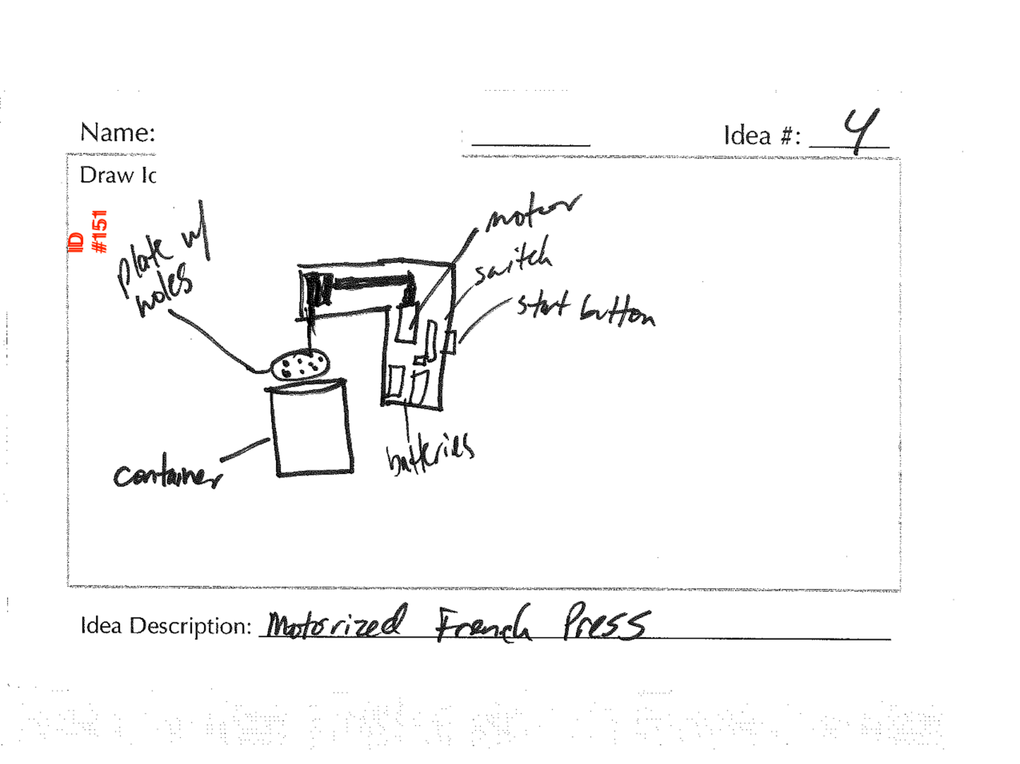 Name:
Idea #: 4
Draw Id
ID
#151
plate w/
holes
motor
switch
start button
container
batteries
Idea Description: Motorized French Press